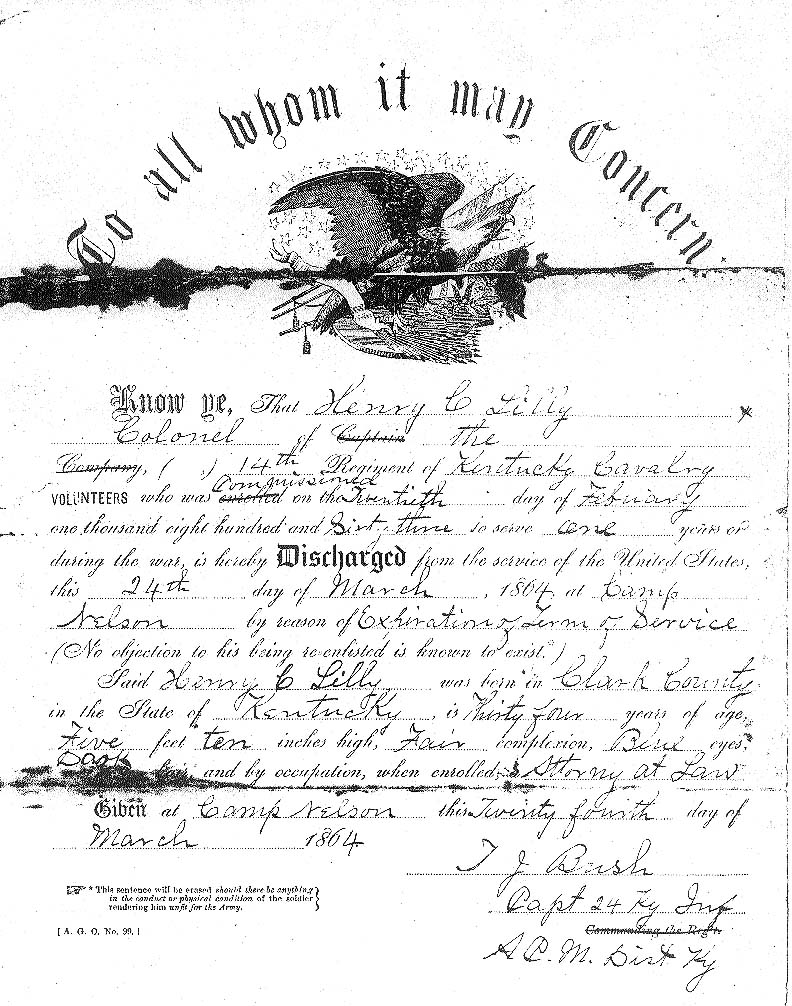 To all whom it may Concern.
Know ye, That Henry C Lilly
Colonel of Captain the
Company, ( ) 14th Regiment of Kentucky Cavalry
Commissioned
VOLUNTEERS who was enrolled on the Twentieth day of February
one thousand eight hundred and Sixty three to serve one years or
during the war, is hereby Discharged from the service of the United States,
this 24th day of March, 1864, at Camp
Nelson by reason of Expiration of Term of Service
(No objection to his being re-enlisted is known to exist.*)
Said Henry C Lilly was born in Clark County
in the State of Kentucky, is Thirty four years of age,
Five feet ten inches high, Fair complexion, Blue eyes,
Dark hair, and by occupation, when enrolled, Attorny at Law
Given at Camp Nelson this Twenty fourth day of
March 1864
T J Bush
Capt 24 Ky Inf
Commanding the Regt.
A C. M. Dist Ky
* This sentence will be erased should there be anything
in the conduct or physical condition of the soldier
rendering him unfit for the Army.
[A. G. O. No. 99.]